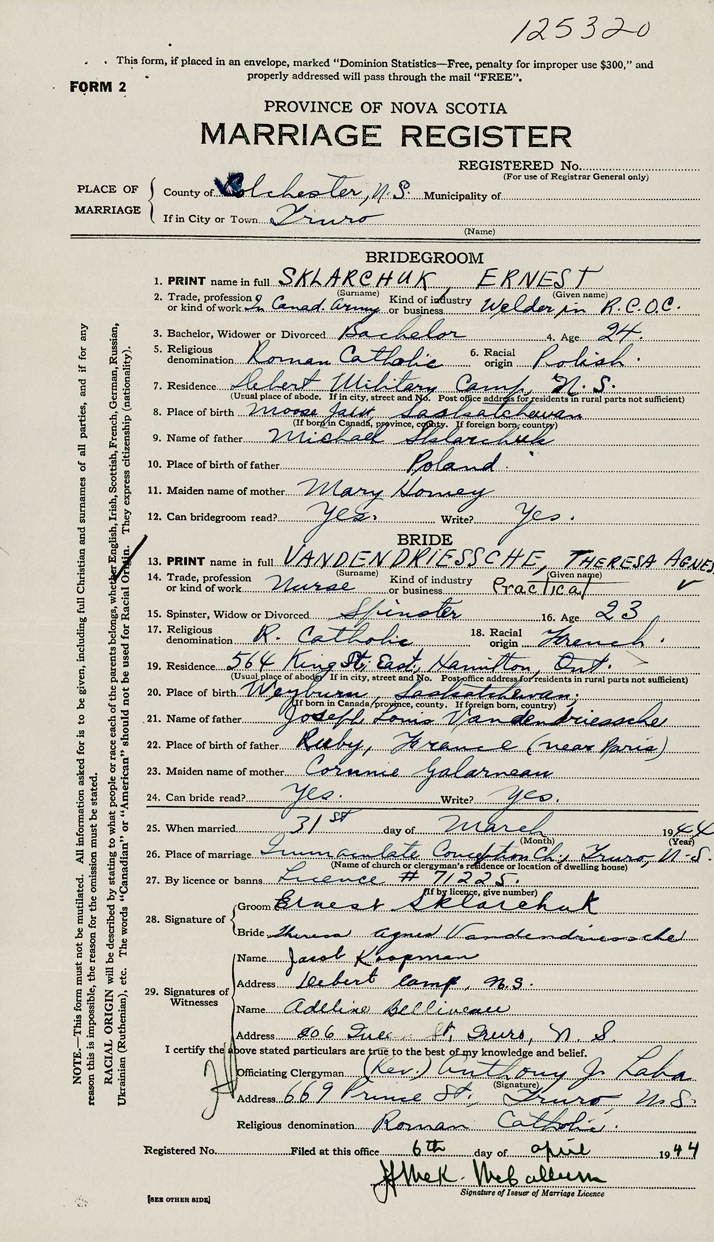 125320
This form, if placed in an envelope, marked "Dominion Statistics—Free, penalty for improper use $300," and
properly addressed will pass through the mail "FREE".
FORM 2
PROVINCE OF NOVA SCOTIA
MARRIAGE REGISTER
REGISTERED No.
(For use of Registrar General only)
PLACE OF MARRIAGE
County of Colchester, N.S. Municipality of
If in City or Town Truro
(Name)
BRIDEGROOM
1. PRINT name in full SKLARCHUK, ERNEST
(Surname) (Given name)
2. Trade, profession or kind of work In Canad. Army Kind of industry or business Welder in R.C.O.C.
3. Bachelor, Widower or Divorced Bachelor 4. Age 24
5. Religious denomination Roman Catholic 6. Racial origin Polish.
7. Residence Debert Military Camp, N.S.
(Usual place of abode. If in city, street and No. Post office address for residents in rural parts not sufficient)
8. Place of birth Moose Jaw, Saskatchewan
(If born in Canada, province, county. If foreign born, country)
9. Name of father Michael Sklarchuk
10. Place of birth of father Poland.
11. Maiden name of mother Mary Homey
12. Can bridegroom read? Yes. Write? Yes.
BRIDE
13. PRINT name in full VANDENDRIESSCHE, THERESA AGNES
(Surname) (Given name)
14. Trade, profession or kind of work Nurse Kind of industry or business Practical
15. Spinster, Widow or Divorced Spinster 16. Age 23
17. Religious denomination R. Catholic 18. Racial origin French.
19. Residence 564 King St. East, Hamilton, Ont.
(Usual place of abode. If in city, street and No. Post office address for residents in rural parts not sufficient)
20. Place of birth Weyburn, Saskatchewan.
(If born in Canada, province, county. If foreign born, country)
21. Name of father Joseph Louis Vandendriessche
22. Place of birth of father Ruby, France (near Paris)
23. Maiden name of mother Corinnie Galarneau
24. Can bride read? Yes. Write? Yes.
25. When married 31st day of March 1944
(Month) (Year)
26. Place of marriage Immaculate Conception Ch., Truro, N.S.
(Name of church or clergyman's residence or location of dwelling house)
27. By licence or banns Licence # 71225.
(If by licence, give number)
28. Signature of
Groom Ernest Sklarchuk
Bride Theresa Agnes Vandendriessche
29. Signatures of Witnesses
Name Jacob Koopman
Address Debert Camp, N.S.
Name Adeline Belliveau
Address 206 St, Truro, N.S
I certify the above stated particulars are true to the best of my knowledge and belief.
Officiating Clergyman (Rev.) Anthony J. Laba
(Signature)
Address 669 Prince St., Truro, N.S.
Religious denomination Roman Catholic.
Registered No. Filed at this office 6th day of April 1944
McCallum
Signature of Issuer of Marriage Licence
[SEE OTHER SIDE]
NOTE.—This form must not be mutilated. All information asked for is to be given, including full Christian and surnames of all parties, and if for any
reason this is impossible, the reason for the omission must be stated.
RACIAL ORIGIN will be described by stating to what people or race each of the parents belongs, whether English, Irish, Scottish, French, German, Russian,
Ukrainian (Ruthenian), etc. The words "Canadian" or "American" should not be used for Racial Origin. They express citizenship (nationality).